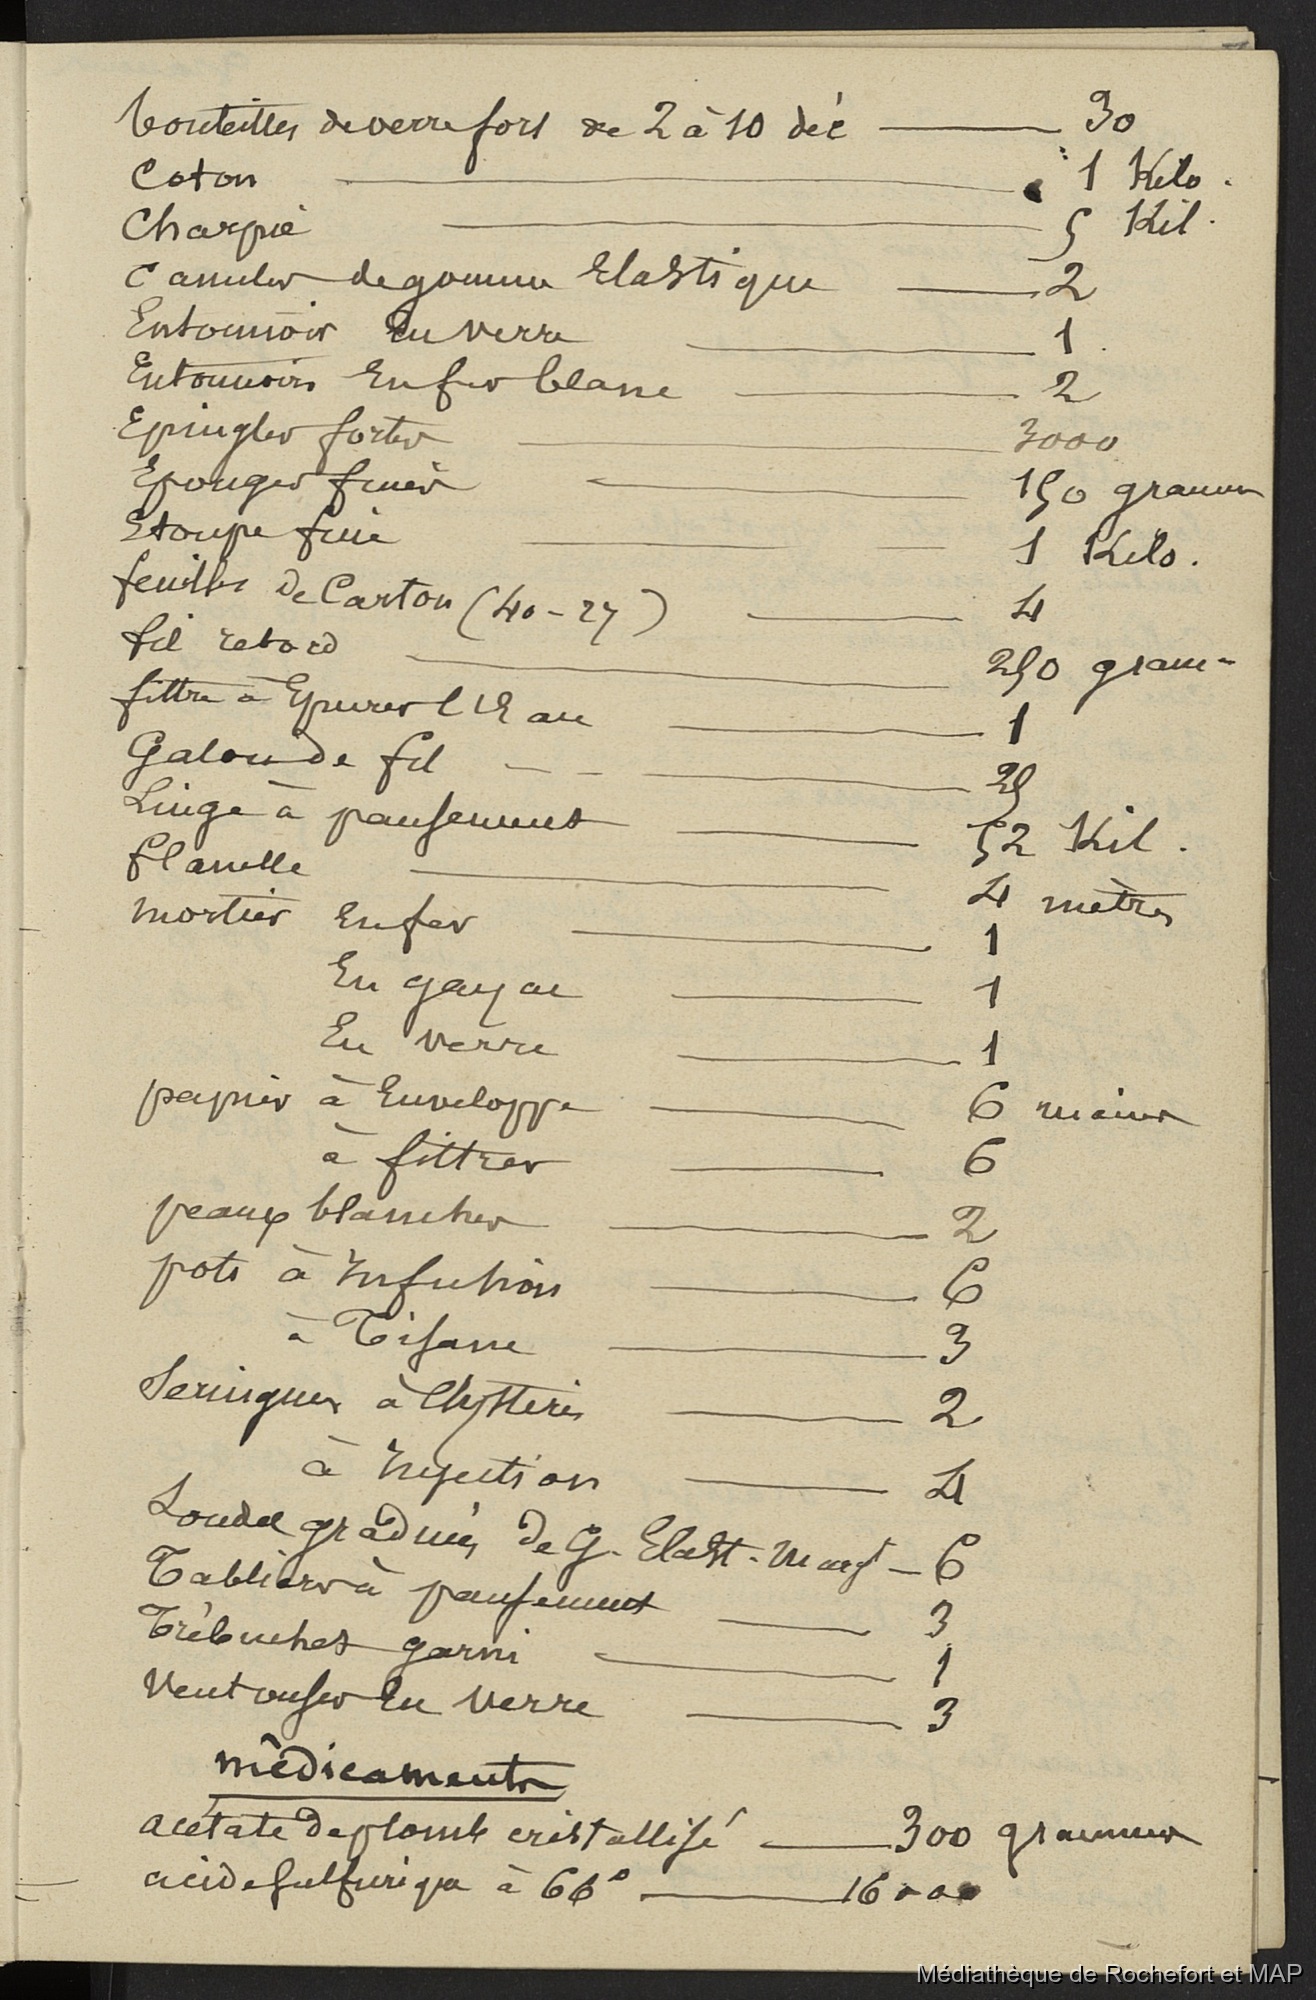 bouteilles de verre fort de 2 à 10 déc 30
Coton 1 Kilo.
Charpie 5 Kil.
Canules de gomme Elastique 2
Entonnoir En verre 1
Entonnoirs En fer blanc 2
Epingles fortes 3000
Eponges fines 150 grammes
Etoupe fine 1 Kilo.
feuilles de Carton (40-27) 4
fil retord 250 gram
filtre à Epurer l'Eau 1
Galon de fil 25
Linge à pansement 52 Kil.
flanelle 4 mètres
mortier En fer 1
En gayac 1
En verre 1
papier à Enveloppe 6 mains
à filtrer 6
peaux blanches 2
pots à Infusion 6
à Tisane 3
Seringues à Clystères 2
à Injection 4
Sondes graduées de G. Elast. 6
Tabliers à pansement 3
Trébuchet garni 1
Ventouses En verre 3
médicaments
acétate de plomb cristallisé 300 grammes
acide sulfurique à 66° 16000
Médiathèque de Rochefort et MAP